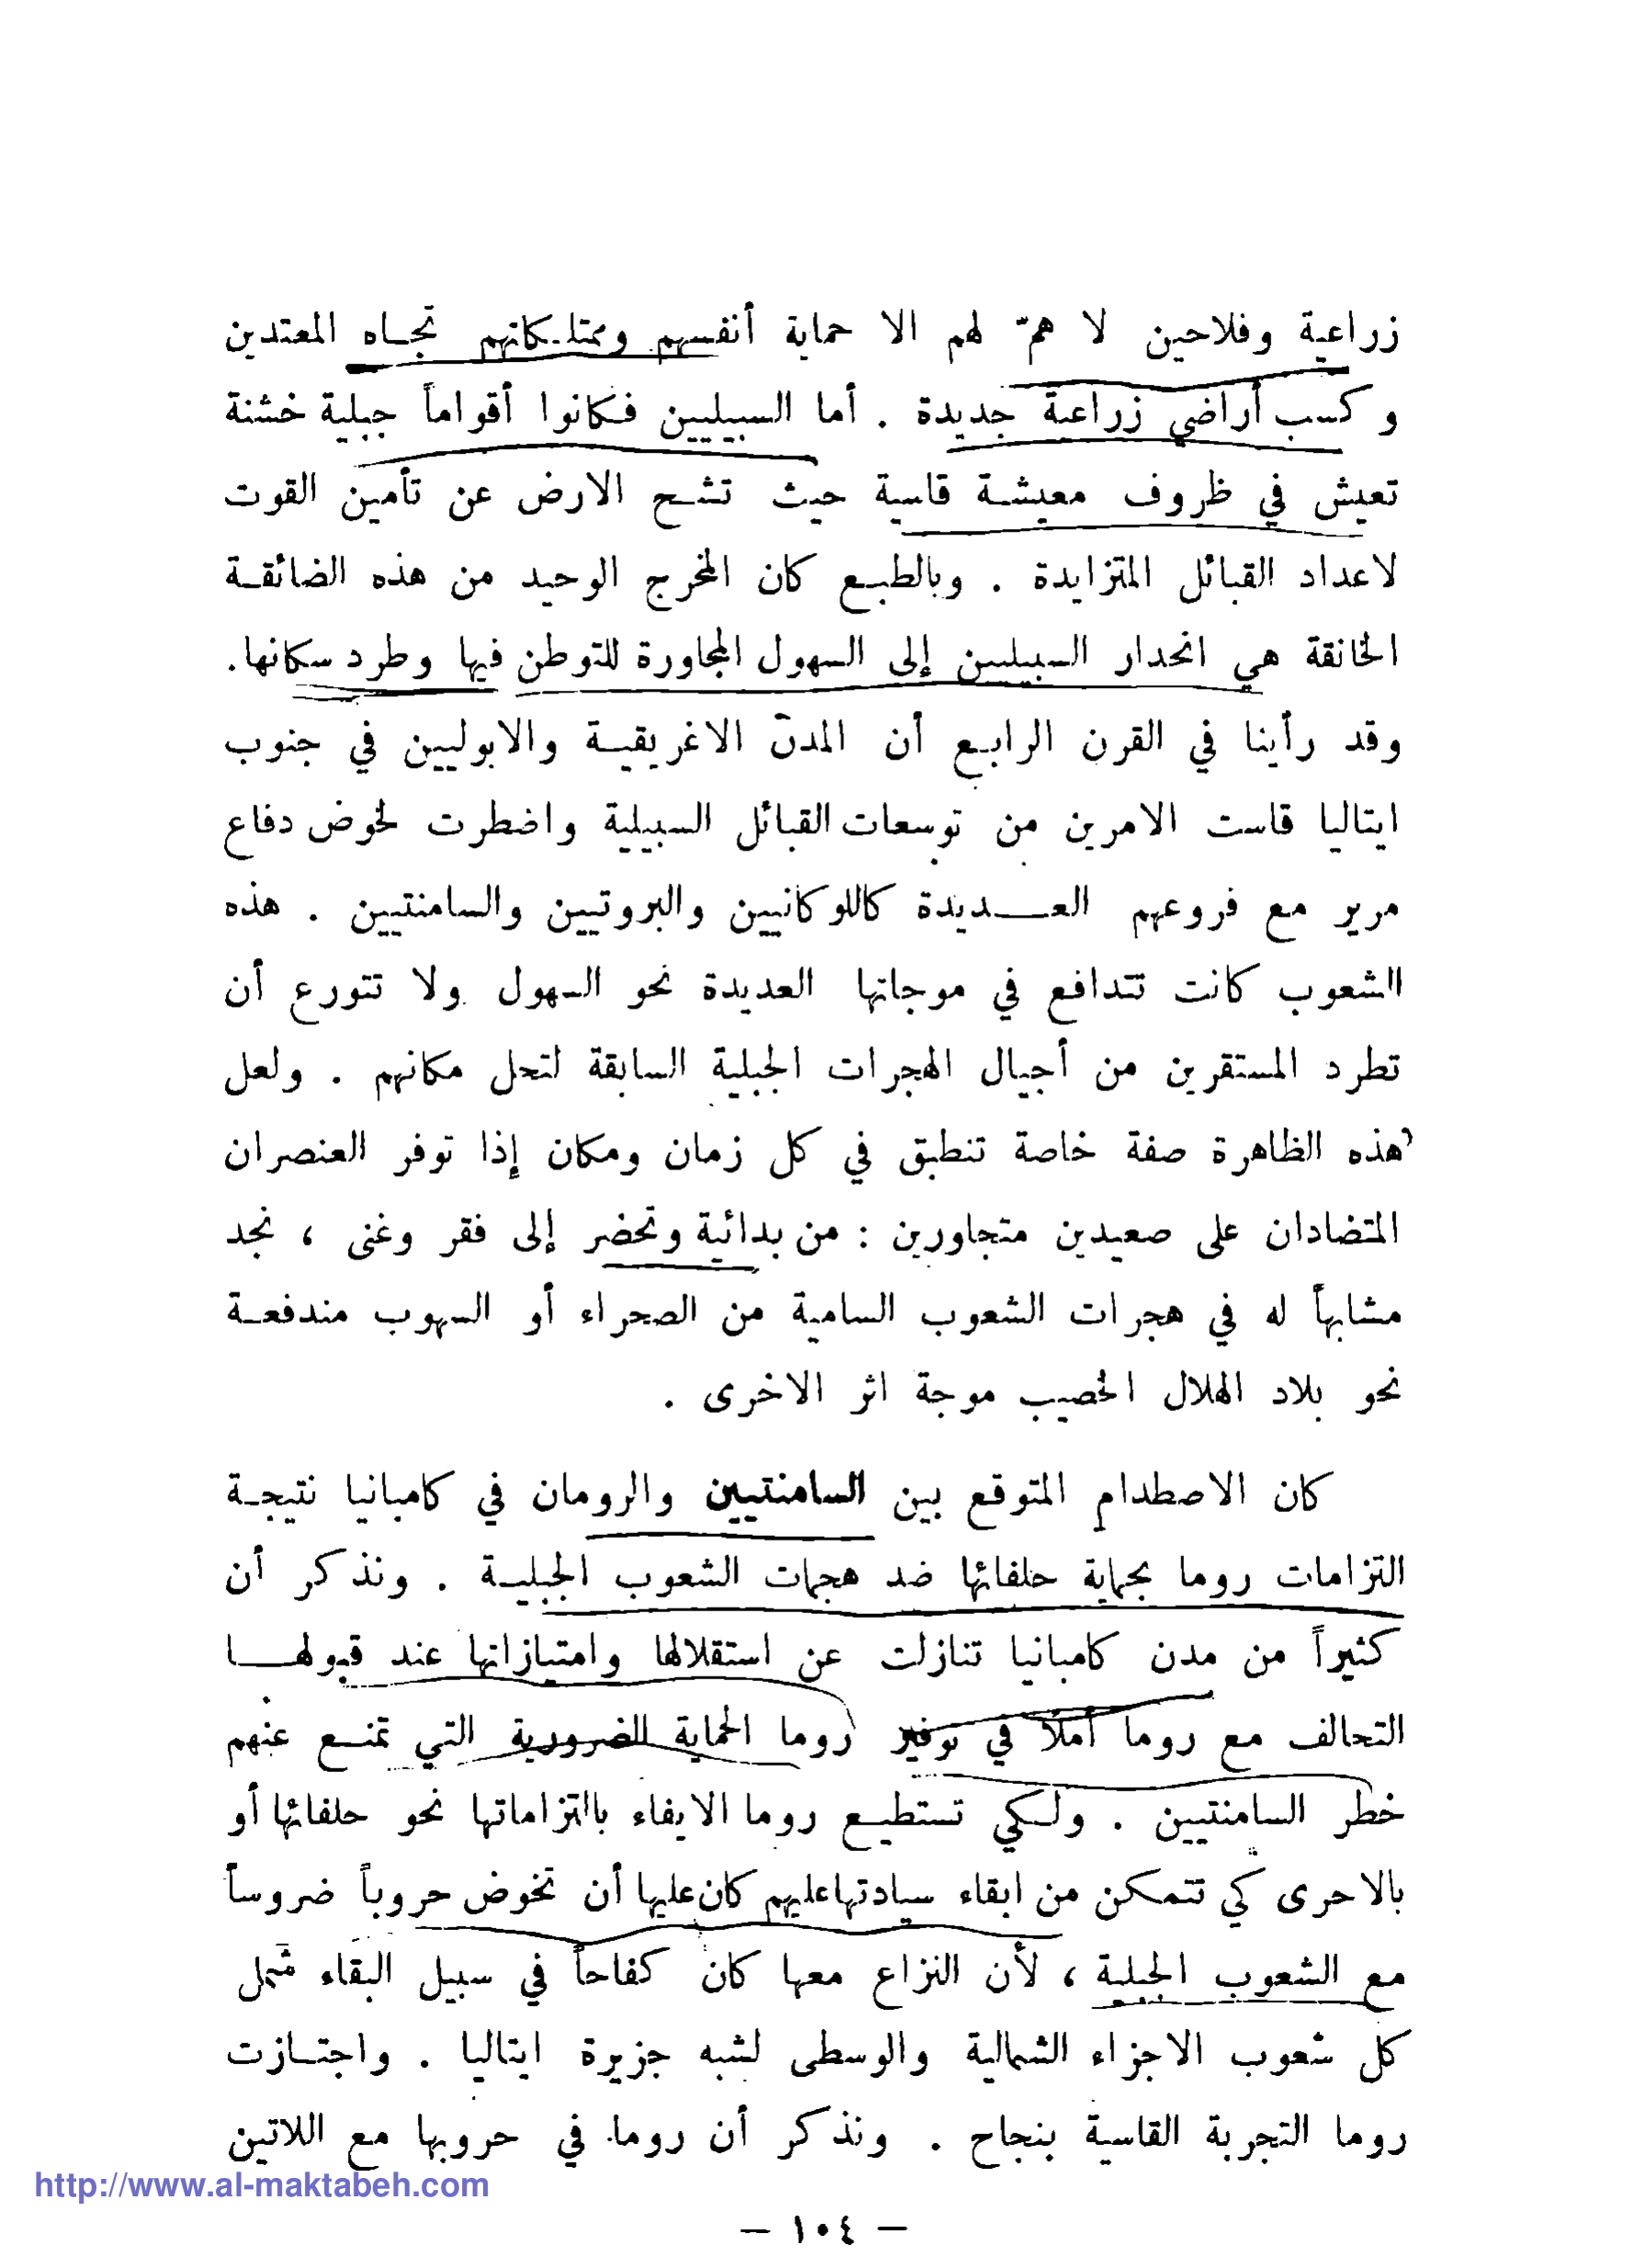 زراعية وفلاحين لا همّ لهم الا حماية أنفسهم وممتلكاتهم تجاه المعتدين
وكسب أراضي زراعية جديدة . أما السبيليين فكانوا أقواماً جبلية خشنة
تعيش في ظروف معيشة قاسية حيث تشح الارض عن تأمين القوت
لاعداد القبائل المتزايدة . وبالطبع كان المخرج الوحيد من هذه الضائقة
الخانقة هي انحدار السبيليين إلى السهول المجاورة للتوطن فيها وطرد سكانها.
وقد رأينا في القرن الرابع أن المدن الاغريقية والابوليين في جنوب
ايتاليا قاست الامرين من توسعات القبائل السبيلية واضطرت لخوض دفاع
مرير مع فروعهم العديدة كاللوكانيين والبروتيين والسامنتيين . هذه
الشعوب كانت تتدافع في موجاتها العديدة نحو السهول ولا تتورع أن
تطرد المستقرين من أجيال الهجرات الجبلية السابقة لتحل مكانهم . ولعل
هذه الظاهرة صفة خاصة تنطبق في كل زمان ومكان إذا توفر العنصران
المتضادان على صعيدين متجاورين : من بدائية وتحضر إلى فقر وغنى ، نجد
مشابهاً له في هجرات الشعوب السامية من الصحراء أو السهوب مندفعة
نحو بلاد الهلال الخصيب موجة اثر الاخرى .
كان الاصطدام المتوقع بين السامنتيين والرومان في كامبانيا نتيجة
التزامات روما بحماية حلفائها ضد هجمات الشعوب الجبلية . ونذكر أن
كثيراً من مدن كامبانيا تنازلت عن استقلالها وامتيازاتها عند قبولها
التحالف مع روما أملاً في توفير روما الحماية الضرورية التي تمنع عنهم
خطر السامنتيين . ولكي تستطيع روما الايفاء بالتزاماتها نحو حلفائها أو
بالاحرى كي تتمكن من ابقاء سيادتها عليهم كان عليها أن تخوض حروباً ضروساً
مع الشعوب الجبلية ، لأن النزاع معها كان كفاحاً في سبيل البقاء شمل
كل شعوب الاجزاء الشمالية والوسطى لشبه جزيرة ايتاليا . واجتازت
روما التجربة القاسية بنجاح . ونذكر أن روما في حروبها مع اللاتين
http://www.al-maktabeh.com
— ١٠٤ —